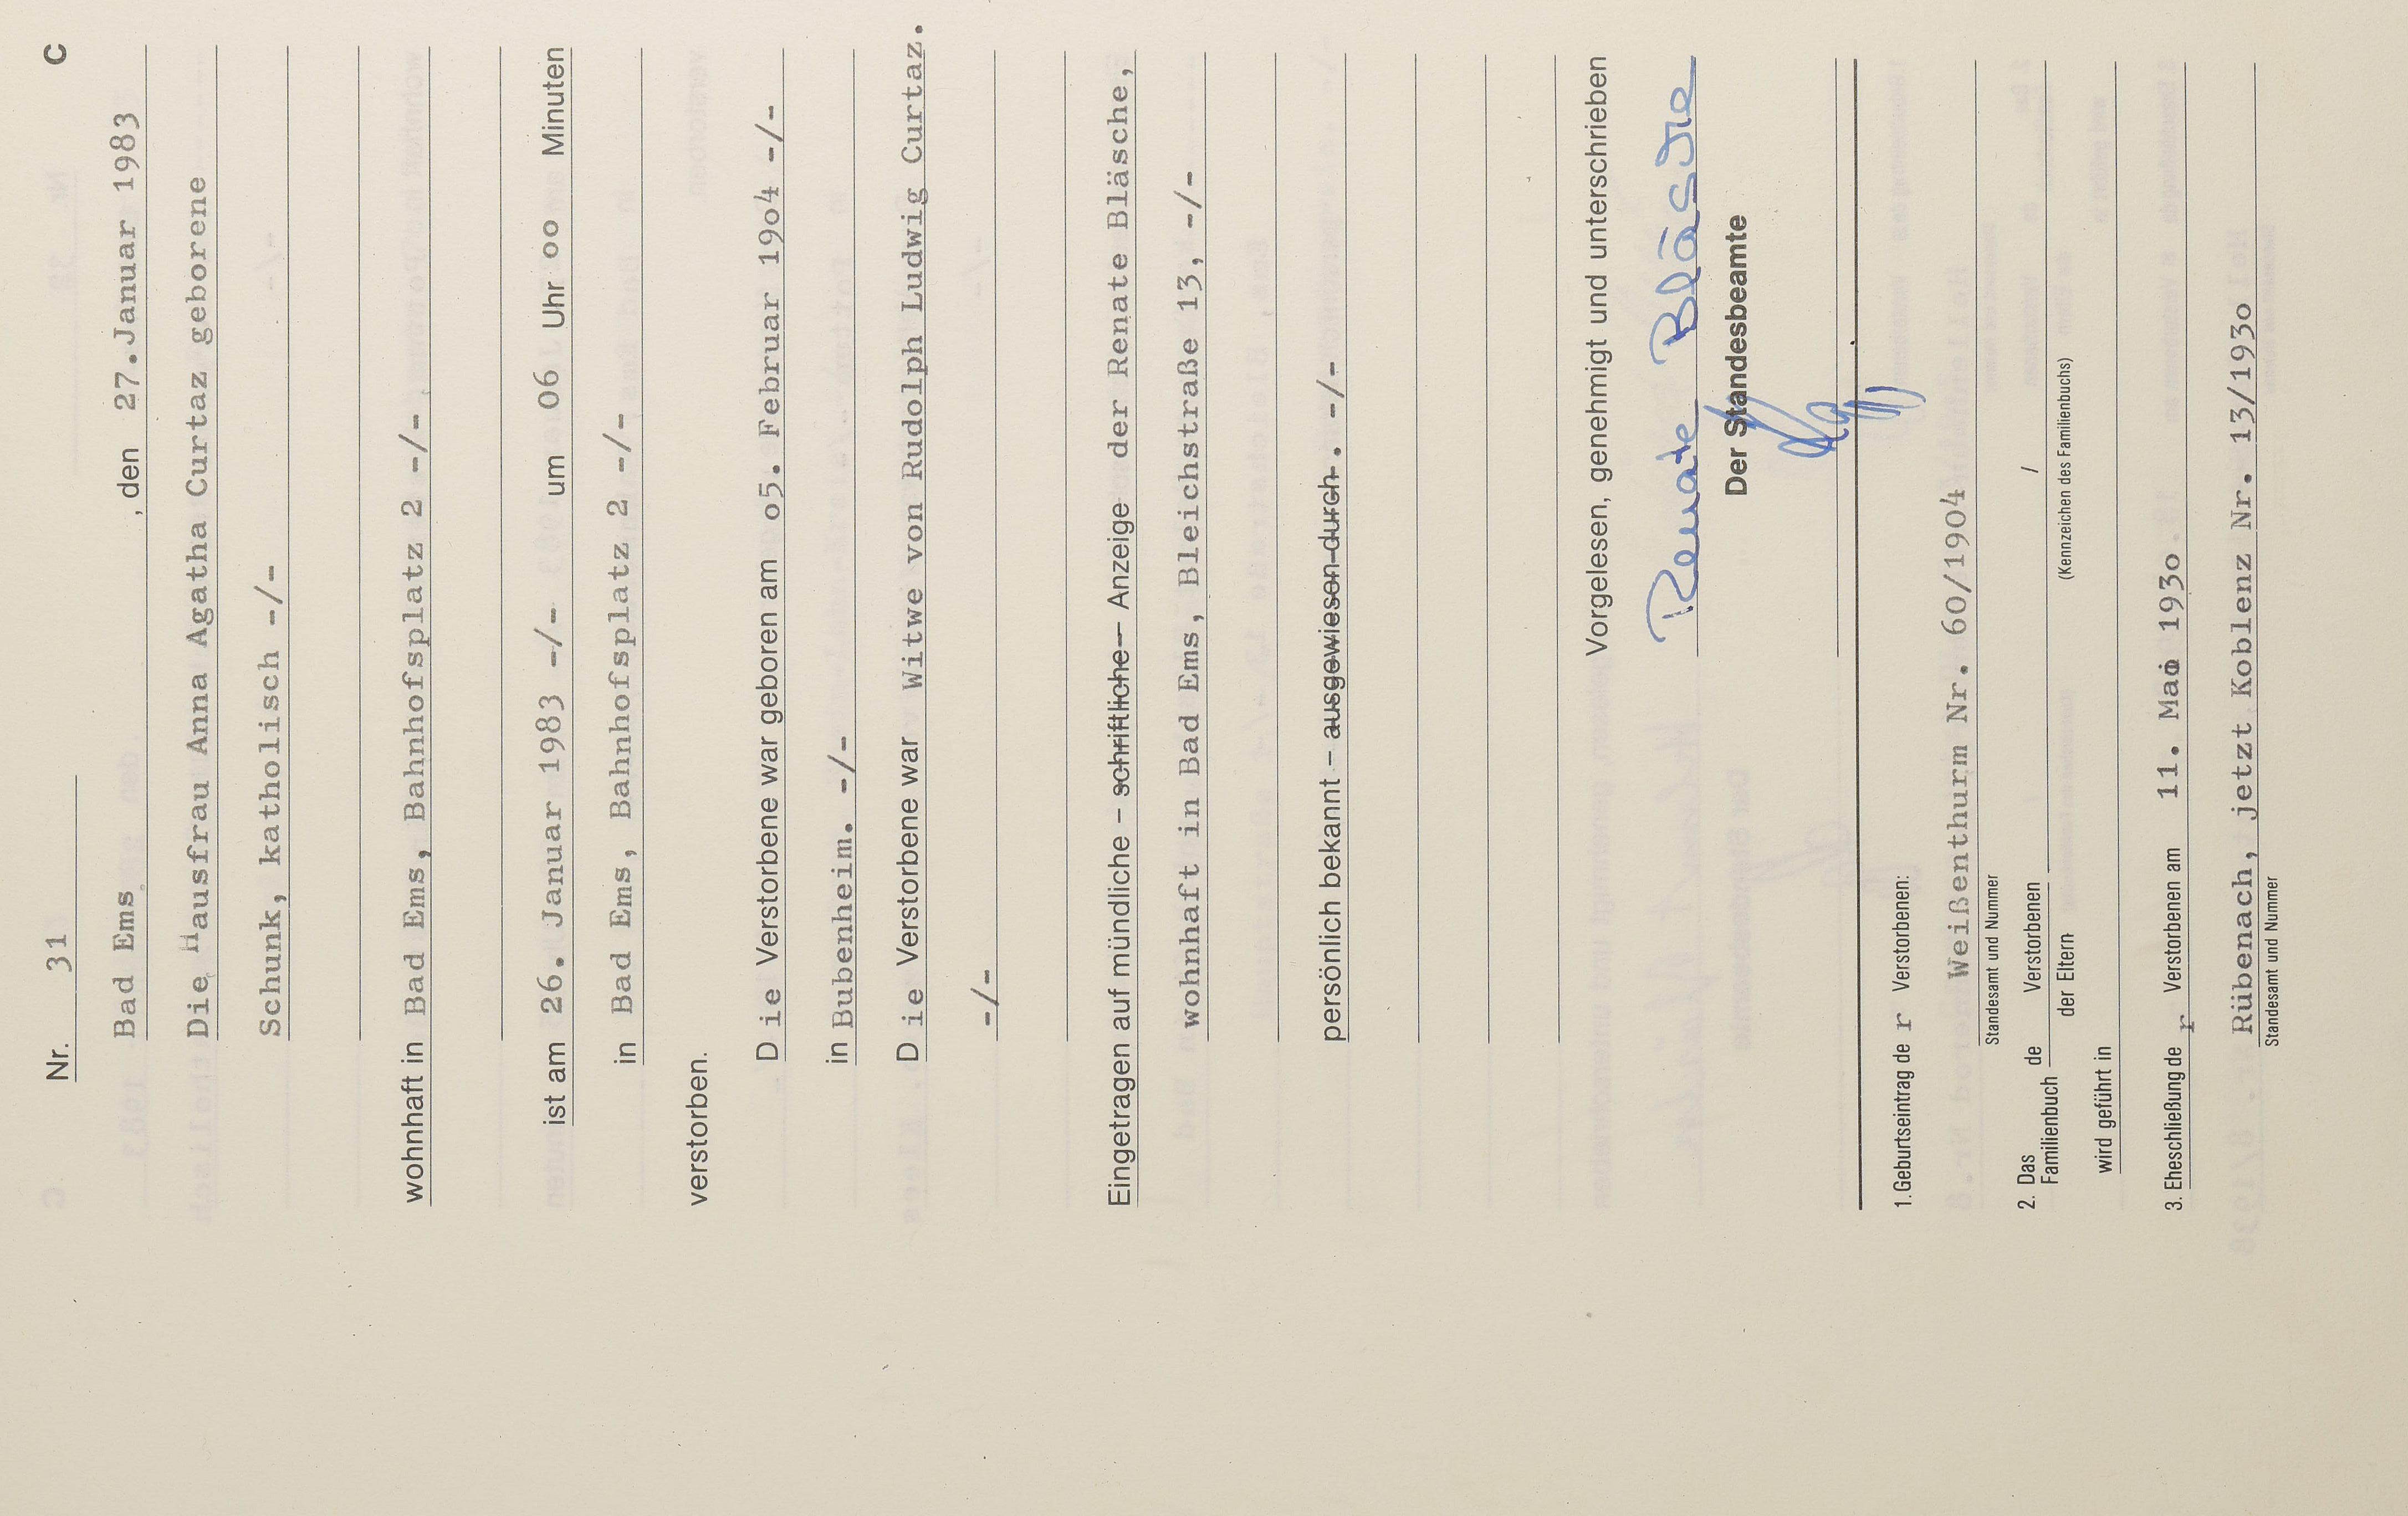 C
Nr. 31
Bad Ems , den 27.Januar 1983
Die Hausfrau Anna Agatha Curtaz geborene
Schunk, katholisch -/-
wohnhaft in Bad Ems, Bahnhofsplatz 2 -/-
ist am 26. Januar 1983 -/- um 06 Uhr oo Minuten
in Bad Ems, Bahnhofsplatz 2 -/-
verstorben.
D ie Verstorbene war geboren am o5. Februar 19o4 -/-
in Bubenheim. -/-
D ie Verstorbene war Witwe von Rudolph Ludwig Curtaz.
-/-
Eingetragen auf mündliche – schriftliche – Anzeige der Renate Bläsche,
wohnhaft in Bad Ems, Bleichstraße 13, -/-
persönlich bekannt – ausgewiesen durch . -/-
Vorgelesen, genehmigt und unterschrieben
Renate Bläsche
Der Standesbeamte
1. Geburtseintrag de r Verstorbenen:
Weißenthurm Nr. 60/1904
Standesamt und Nummer
2. Das Familienbuch de Verstorbenen /
der Eltern (Kennzeichen des Familienbuchs)
wird geführt in
3. Eheschließung de r Verstorbenen am 11. Mai 193o
Rübenach, jetzt Koblenz Nr. 13/193o
Standesamt und Nummer